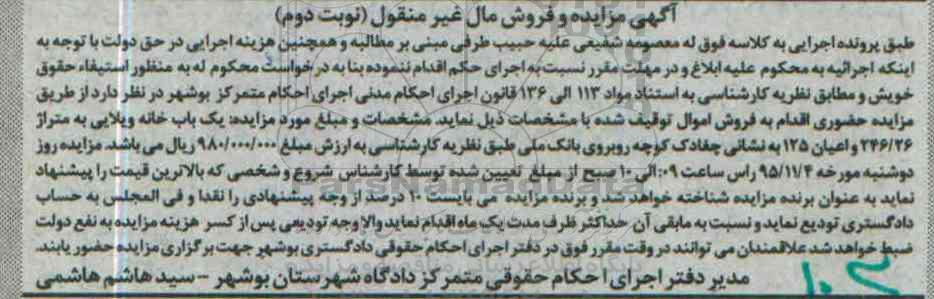 آگهی مزایده و فروش مال غیر منقول (نوبت دوم)
طبق پرونده اجرایی به کلاسه فوق له معصومه شفیعی علیه حبیب طرفی مبنی بر مطالبه و همچنین هزینه اجرایی در حق دولت با توجه به
اینکه اجرائیه به محکوم علیه ابلاغ و در مهلت مقرر نسبت به اجرای حکم اقدام ننموده بنا به درخواست محکوم له به منظور استیفاء حقوق
خویش و مطابق نظریه کارشناسی به استناد مواد ۱۱۳ الی ۱۳۶ قانون اجرای احکام مدنی اجرای احکام متمرکز بوشهر در نظر دارد از طریق
مزایده حضوری اقدام به فروش اموال توقیف شده با مشخصات ذیل نماید. مشخصات و مبلغ مورد مزایده: یک باب خانه ویلایی به متراژ
۲۴۶/۲۶ و اعیان ۱۲۵ به نشانی چغادک کوچه روبروی بانک ملی طبق نظریه کارشناسی به ارزش مبلغ ۹۸۰/۰۰۰/۰۰۰ ریال می باشد. مزایده روز
دوشنبه مورخه ۹۵/۱۱/۴ راس ساعت ۰۹:الی ۱۰ صبح از مبلغ تعیین شده توسط کارشناس شروع و شخصی که بالاترین قیمت را پیشنهاد
نماید به عنوان برنده مزایده شناخته خواهد شد و برنده مزایده می بایست ۱۰ درصد از وجه پیشنهادی را نقدا و فی المجلس به حساب
دادگستری تودیع نماید و نسبت به مابقی آن حداکثر ظرف مدت یک ماه اقدام نماید والا وجه تودیعی پس از کسر هزینه مزایده به نفع دولت
ضبط خواهد شد علاقمندان می توانند در وقت مقرر فوق در دفتر اجرای احکام حقوقی دادگستری بوشهر جهت برگزاری مزایده حضور یابند.
مدیر دفتر اجرای احکام حقوقی متمرکز دادگاه شهرستان بوشهر - سید هاشم هاشمی
ParsNamadData